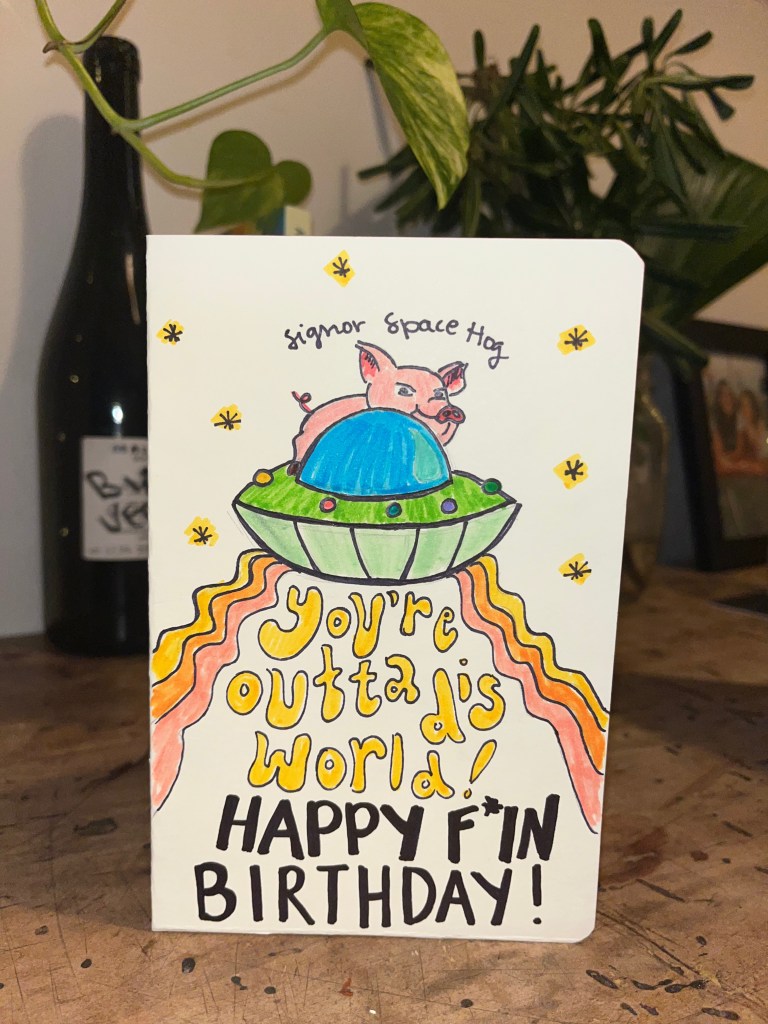 signor space Hog
you're
outta dis
world!
HAPPY F*IN
BIRTHDAY!